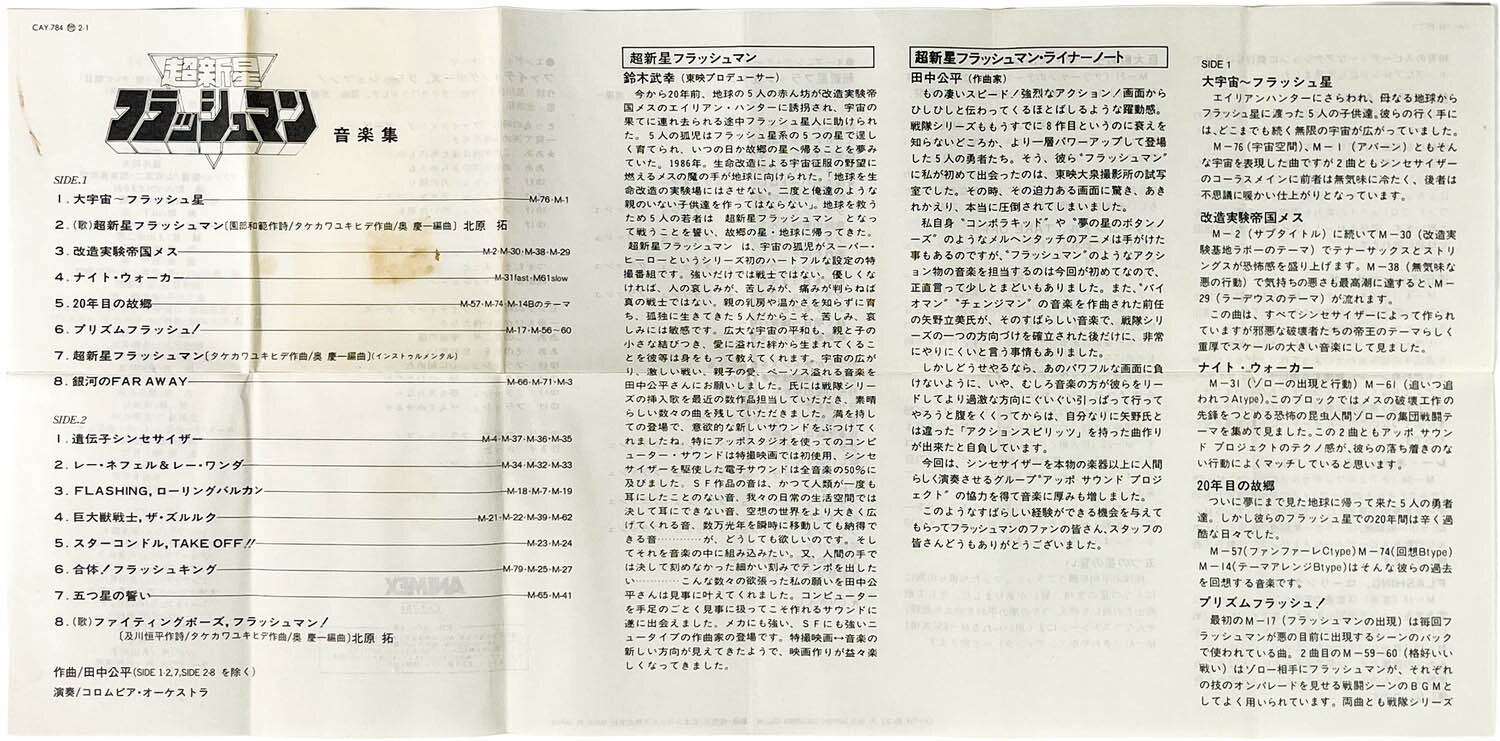 CAY-784 2-1
超新星
フラッシュマン
音楽集
SIDE.1
1. 大宇宙〜フラッシュ星 M-76・M-1
2.(歌)超新星フラッシュマン〔園部和範作詩/タケカワユキヒデ作曲/奥 慶一編曲〕北原 拓
3. 改造実験帝国メス M-2・M-30・M-38・M-29
4. ナイト・ウォーカー M-31fast・M61slow
5. 20年目の故郷 M-57・M-74・M-14Bのテーマ
6. プリズムフラッシュ! M-17・M-56〜60
7. 超新星フラッシュマン〔タケカワユキヒデ作曲/奥 慶一編曲〕(インストゥルメンタル)
8. 銀河のFAR AWAY M-66・M-71・M-3
SIDE.2
1. 遺伝子シンセサイザー M-4・M-37・M-36・M-35
2. レー・ネフェル&レー・ワンダ M-34・M-32・M-33
3. FLASHING, ローリングバルカン M-18・M-7・M-19
4. 巨大獣戦士, ザ・ズルルク M-21・M-22・M-39・M-62
5. スターコンドル, TAKE OFF!! M-23・M-24
6. 合体! フラッシュキング M-79・M-25・M-27
7. 五つ星の誓い M-65・M-41
8.(歌)ファイティングポーズ, フラッシュマン!
〔及川恒平作詩/タケカワユキヒデ作曲/奥 慶一編曲〕北原 拓
作曲/田中公平(SIDE 1-2,7,SIDE 2-8 を除く)
演奏/コロムビア・オーケストラ
超新星フラッシュマン
鈴木武幸(東映プロデューサー)
今から20年前、地球の5人の赤ん坊が改造実験帝
国メスのエイリアン・ハンターに誘拐され、宇宙の
果てに連れ去られる途中フラッシュ星人に助けられ
た。5人の孤児はフラッシュ星系の5つの星で逞し
く育てられ、いつの日か故郷の星へ帰ることを夢み
ていた。1986年。生命改造による宇宙征服の野望に
燃えるメスの魔の手が地球に向けられた。「地球を生
命改造の実験場にはさせない。二度と俺達のような
親のいない子供達を作ってはならない」。地球を救う
ため5人の若者は 超新星フラッシュマン となっ
て戦うことを誓い、故郷の星・地球に帰ってきた。
超新星フラッシュマン は、宇宙の孤児がスーパー・
ヒーローというシリーズ初のハートフルな設定の特
撮番組です。強いだけでは戦士ではない。優しくな
ければ、人の哀しみが、苦しみが、痛みが判らねば
真の戦士ではない。親の乳房や温かさを知らずに育
ち、孤独に生きてきた5人だからこそ、苦しみ、哀
しみには敏感です。広大な宇宙の平和も、親と子の
小さな結びつき、愛に溢れた絆から生まれてくるこ
とを彼等は身をもって教えてくれます。宇宙の広が
り、激しい戦い、親子の愛、ペーソス溢れる音楽を
田中公平さんにお願いしました。氏には戦隊シリー
ズの挿入歌を最近の数作品担当していただき、素晴
らしい数々の曲を残していただきました。満を持し
ての登場で、意欲的な新しいサウンドをぶつけてく
れましたね。特にアッポスタジオを使ってのコンピ
ューター・サウンドは特撮映画では初使用、シンセ
サイザーを駆使した電子サウンドは全音楽の50%に
及びました。SF作品の音は、かつて人類が一度も
耳にしたことのない音、我々の日常の生活空間では
決して耳にできない音、空想の世界をより大きく広
げてくれる音、数万光年を瞬時に移動しても納得で
きる音…………が、どうしても欲しいのです。そし
てそれを音楽の中に組み込みたい。又、人間の手で
は決して刻めなかった細かい刻みでテンポを出した
い…………こんな数々の欲張った私の願いを田中公
平さんは見事に叶えてくれました。コンピューター
を手足のごとく見事に扱ってこそ作れるサウンドに
遂に出会えました。メカにも強い、SFにも強いニ
ュータイプの作曲家の登場です。特撮映画↔音楽の
新しい方向が見えてきたようで、映画作りが益々楽
しくなってきました。
超新星フラッシュマン・ライナーノート
田中公平(作曲家)
もの凄いスピード!強烈なアクション!画面から
ひしひしと伝わってくるほとばしるような躍動感。
戦隊シリーズももうすでに8作目というのに衰えを
知らないどころか、より一層パワーアップして登場
した5人の勇者たち。そう、彼ら“フラッシュマン”
に私が初めて出会ったのは、東映大泉撮影所の試写
室でした。その時、その迫力ある画面に驚き、あき
れかえり、本当に圧倒されてしまいました。
私自身“コンポラキッド”や“夢の星のボタンノ
ーズ”のようなメルヘンタッチのアニメは手がけた
事もあるのですが、“フラッシュマン”のようなアクシ
ョン物の音楽を担当するのは今回が初めてなので、
正直言って少しとまどいもありました。また、“バイ
オマン”“チェンジマン”の音楽を作曲された前任
の矢野立美氏が、そのすばらしい音楽で、戦隊シリ
ーズの一つの方向づけを確立された後だけに、非常
にやりにくいと言う事情もありました。
しかしどうせやるなら、あのパワフルな画面に負
けないように、いや、むしろ音楽の方が彼らをリー
ドしてより過激な方向にぐいぐい引っぱって行って
やろうと腹をくくってからは、自分なりに矢野氏と
は違った「アクションスピリッツ」を持った曲作り
が出来たと自負しています。
今回は、シンセサイザーを本物の楽器以上に人間
らしく演奏させるグループ“アッポ サウンド プロジ
ェクト”の協力を得て音楽に厚みも増しました。
このようなすばらしい経験ができる機会を与えて
もらってフラッシュマンのファンの皆さん、スタッフの
皆さんどうもありがとうございました。
SIDE 1
大宇宙〜フラッシュ星
エイリアンハンターにさらわれ、母なる地球から
フラッシュ星に渡った5人の子供達。彼らの行く手に
は、どこまでも続く無限の宇宙が広がっていました。
M-76(宇宙空間)、M-1(アバーン)ともそん
な宇宙を表現した曲ですが2曲ともシンセサイザー
のコーラスメインに前者は無気味に冷たく、後者は
不思議に暖かい仕上がりとなっています。
改造実験帝国メス
M-2(サブタイトル)に続いてM-30(改造実
験基地ラボーのテーマ)でテナーサックスとストリ
ングスが恐怖感を盛り上げます。M-38(無気味な
悪の行動)で気持ちの悪さも最高潮に達すると、M-
29(ラーデウスのテーマ)が流れます。
この曲は、すべてシンセサイザーによって作られ
ていますが邪悪な破壊者たちの帝王のテーマらしく
重厚でスケールの大きい音楽にして見ました。
ナイト・ウォーカー
M-31(ゾローの出現と行動)M-61(追いつ追
われつAtype)。このブロックではメスの破壊工作の
先鋒をつとめる恐怖の昆虫人間ゾローの集団戦闘テ
ーマを集めて見ました。この2曲ともアッポ サウン
ド プロジェクトのテクノ感が、彼らの落ち着きのな
い行動によくマッチしていると思います。
20年目の故郷
ついに夢にまで見た地球に帰って来た5人の勇者
達。しかし彼らのフラッシュ星での20年間は辛く過
酷な日々でした。
M-57(ファンファーレCtype)M-74(回想Btype)
M-14(テーマアレンジBtype)はそんな彼らの過去
を回想する音楽です。
プリズムフラッシュ!
最初のM-17(フラッシュマンの出現)は毎回フ
ラッシュマンが悪の目前に出現するシーンのバック
で使われている曲。2曲目のM-59-60(格好いい
戦い)はゾロー相手にフラッシュマンが、それぞれ
の技のオンパレードを見せる戦闘シーンのBGMと
してよく用いられています。両曲とも戦隊シリーズ